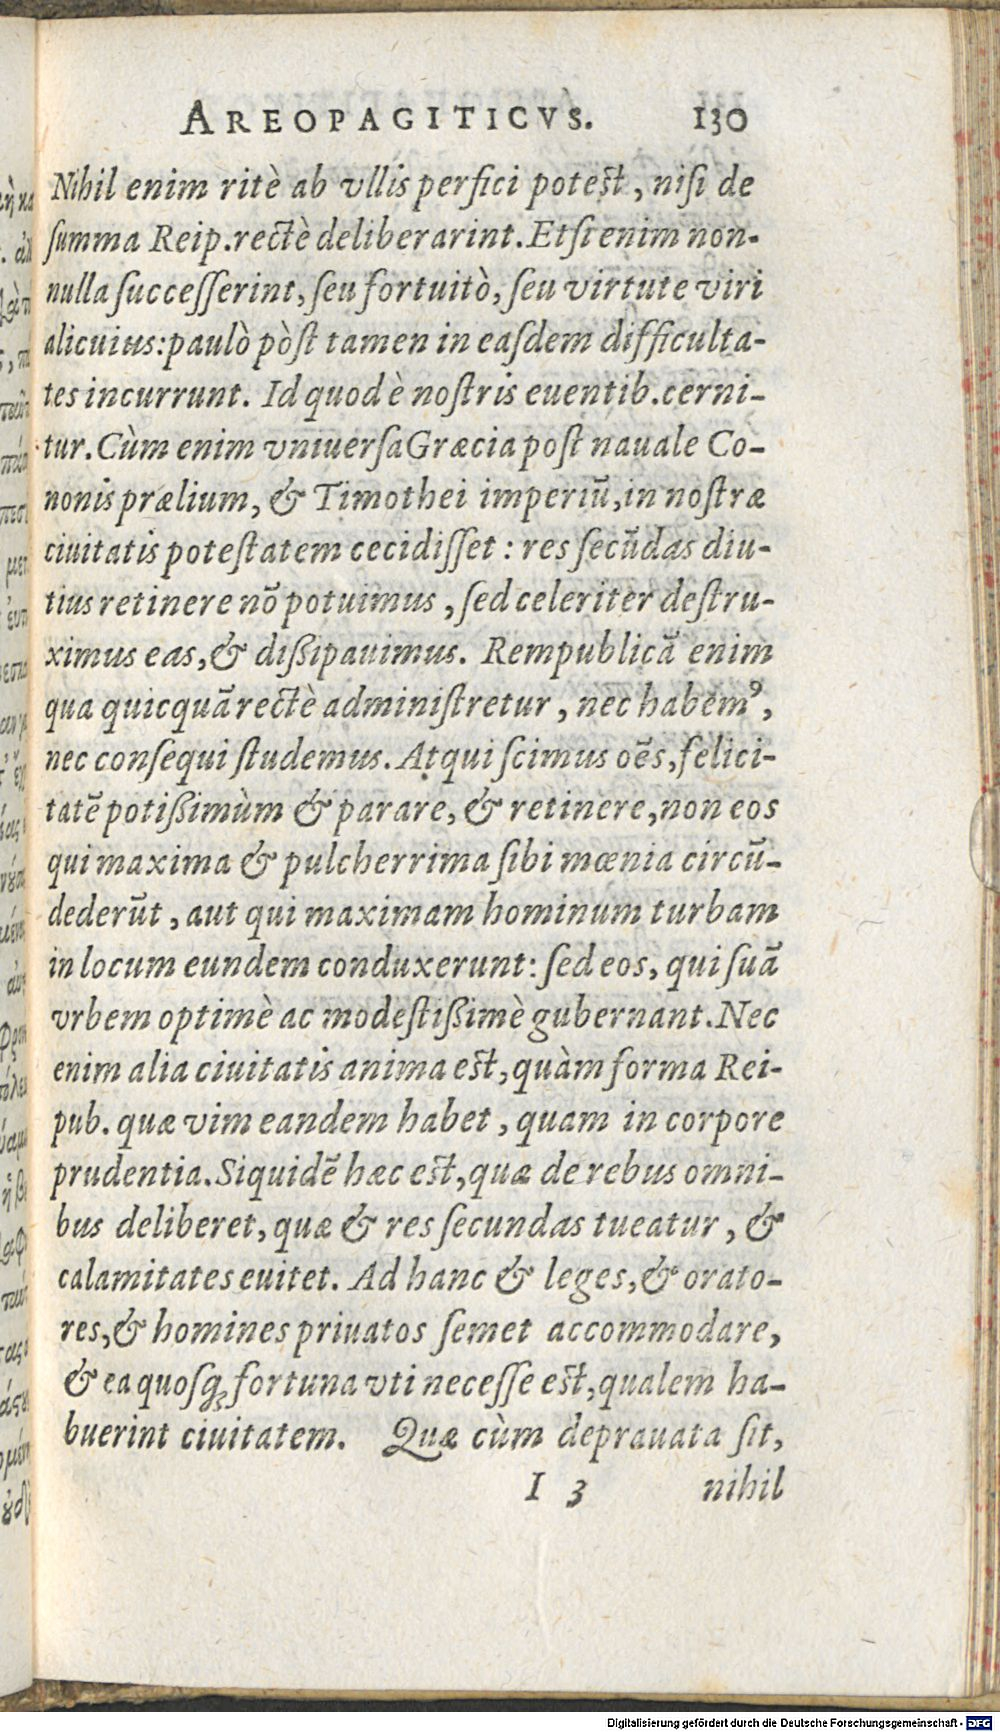 AREOPAGITICVS. 130
Nihil enim ritè ab vllis perfici potest, nisi de
summa Reip. rectè deliberarint. Etsi enim non-
nulla successerint, seu fortuitò, seu virtute viri
alicuius: paulò pòst tamen in easdem difficulta-
tes incurrunt. Id quod è nostris euentib. cerni-
tur. Cùm enim vniuersa Græcia post nauale Co-
nonis prælium, & Timothei imperiũ, in nostræ
ciuitatis potestatem cecidisset: res secũdas diu-
tius retinere nõ potuimus, sed celeriter destru-
ximus eas, & dißipauimus. Rempublicã enim
qua quicquã rectè administretur, nec habemꝰ,
nec consequi studemus. Atqui scimus oẽs, felici-
tatẽ potißimùm & parare, & retinere, non eos
qui maxima & pulcherrima sibi mœnia circũ-
dederũt, aut qui maximam hominum turbam
in locum eundem conduxerunt: sed eos, qui suã
vrbem optimè ac modestißimè gubernant. Nec
enim alia ciuitatis anima est, quàm forma Rei-
pub. quæ vim eandem habet, quam in corpore
prudentia. Siquidẽ hæc est, quæ de rebus omni-
bus deliberet, quæ & res secundas tueatur, &
calamitates euitet. Ad hanc & leges, & orato-
res, & homines priuatos semet accommodare,
& ea quosq; fortuna vti necesse est, qualem ha-
buerint ciuitatem. Quæ cùm deprauata sit,
I 3 nihil
Digitalisierung gefördert durch die Deutsche Forschungsgemeinschaft - DFG